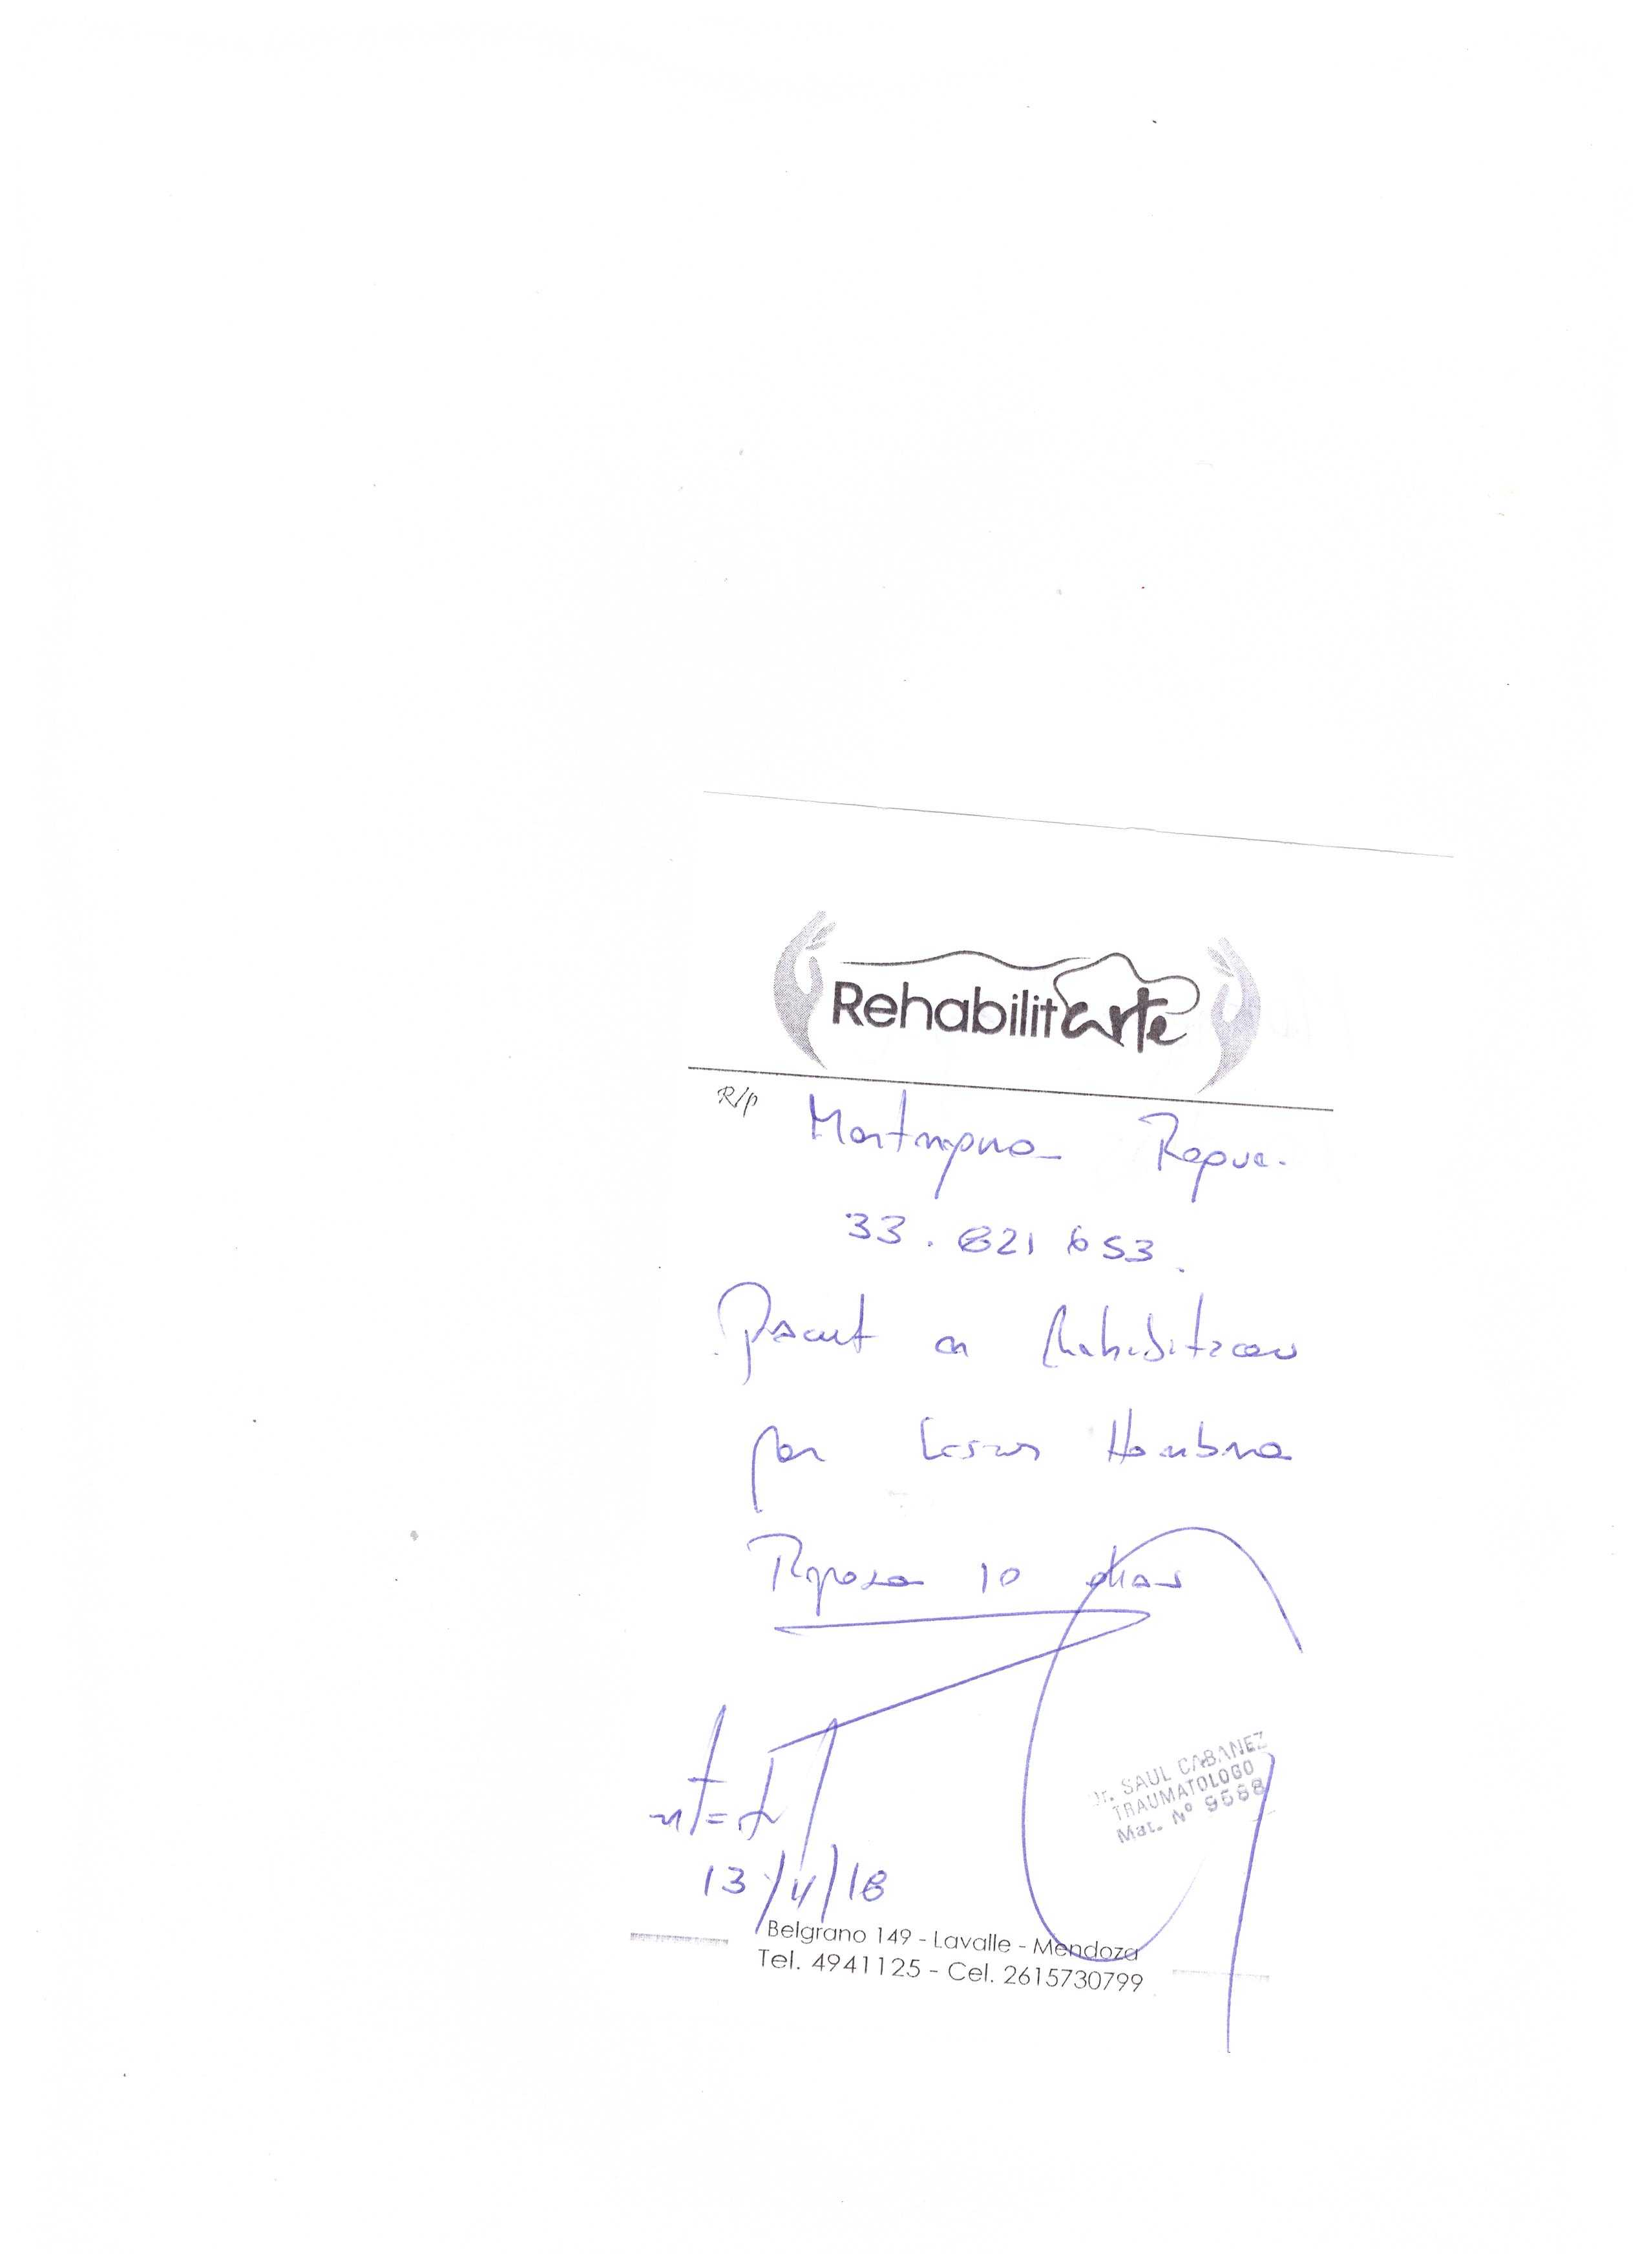 Rehabilitarte
R/p
33.821653.
en Rehabilitacion
por Lesion Hombro
Reposo 10 dias
13/4/18
Dr. SAUL CABANEZ
TRAUMATOLOGO
Mat. Nº 9588
Belgrano 149 - Lavalle - Mendoza
Tel. 4941125 - Cel. 2615730799